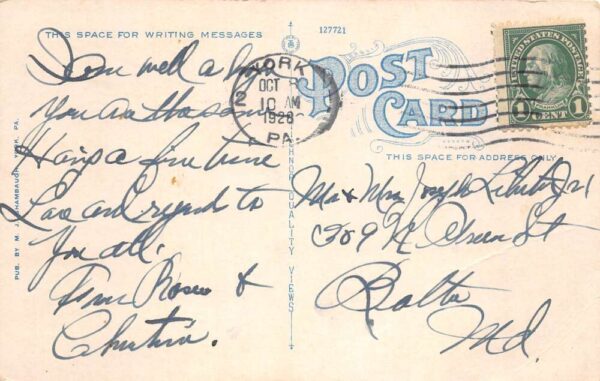 THIS SPACE FOR WRITING MESSAGES
127721
POST
CARD
THIS SPACE FOR ADDRESS ONLY
YORK
OCT 8
10 AM
1928
PA.
2
UNITED STATES POSTAGE
1 CENT 1
well a
You are the same
Having a fine time
Love and regards to
You all.
From Rosie &
Christina.
Mr & Mrs Joseph Jr
309 N. Green St
Balto
Md.
PUB. BY M. J. SHAMBAUGH, YORK, PA.
QUALITY VIEWS